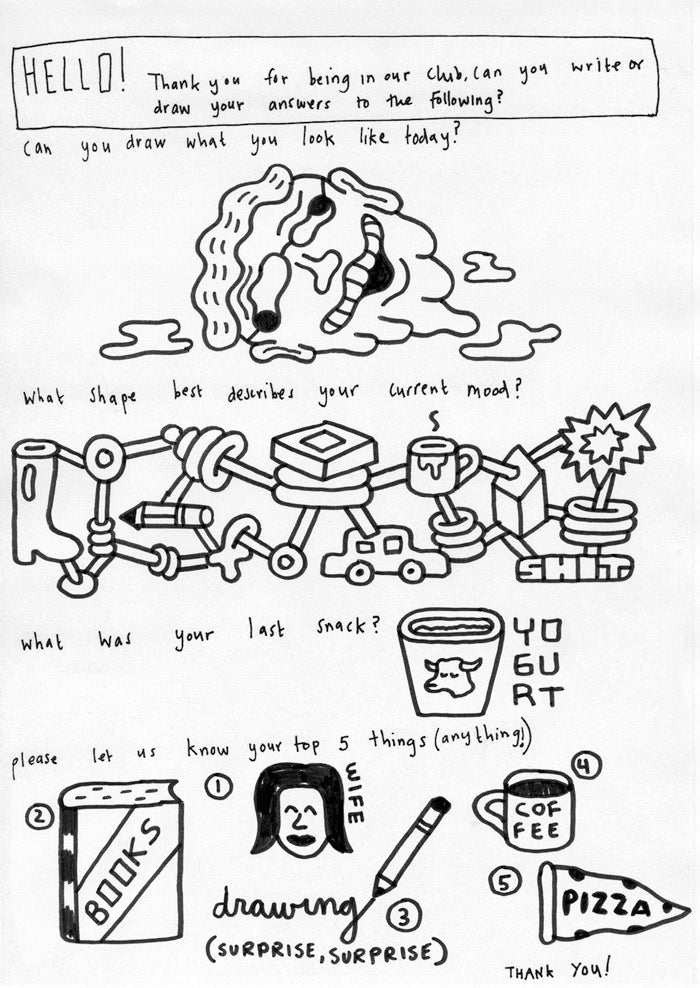 HELLO! Thank you for being in our club. Can you write or
draw your answers to the following?
Can you draw what you look like today?
What shape best describes your current mood?
SHIT
what was your last snack?
YO
GU
RT
please let us know your top 5 things (anything!)
1
WIFE
2
BOOKS
drawing
3
(SURPRISE, SURPRISE)
4
COF
FEE
5
PIZZA
THANK YOU!